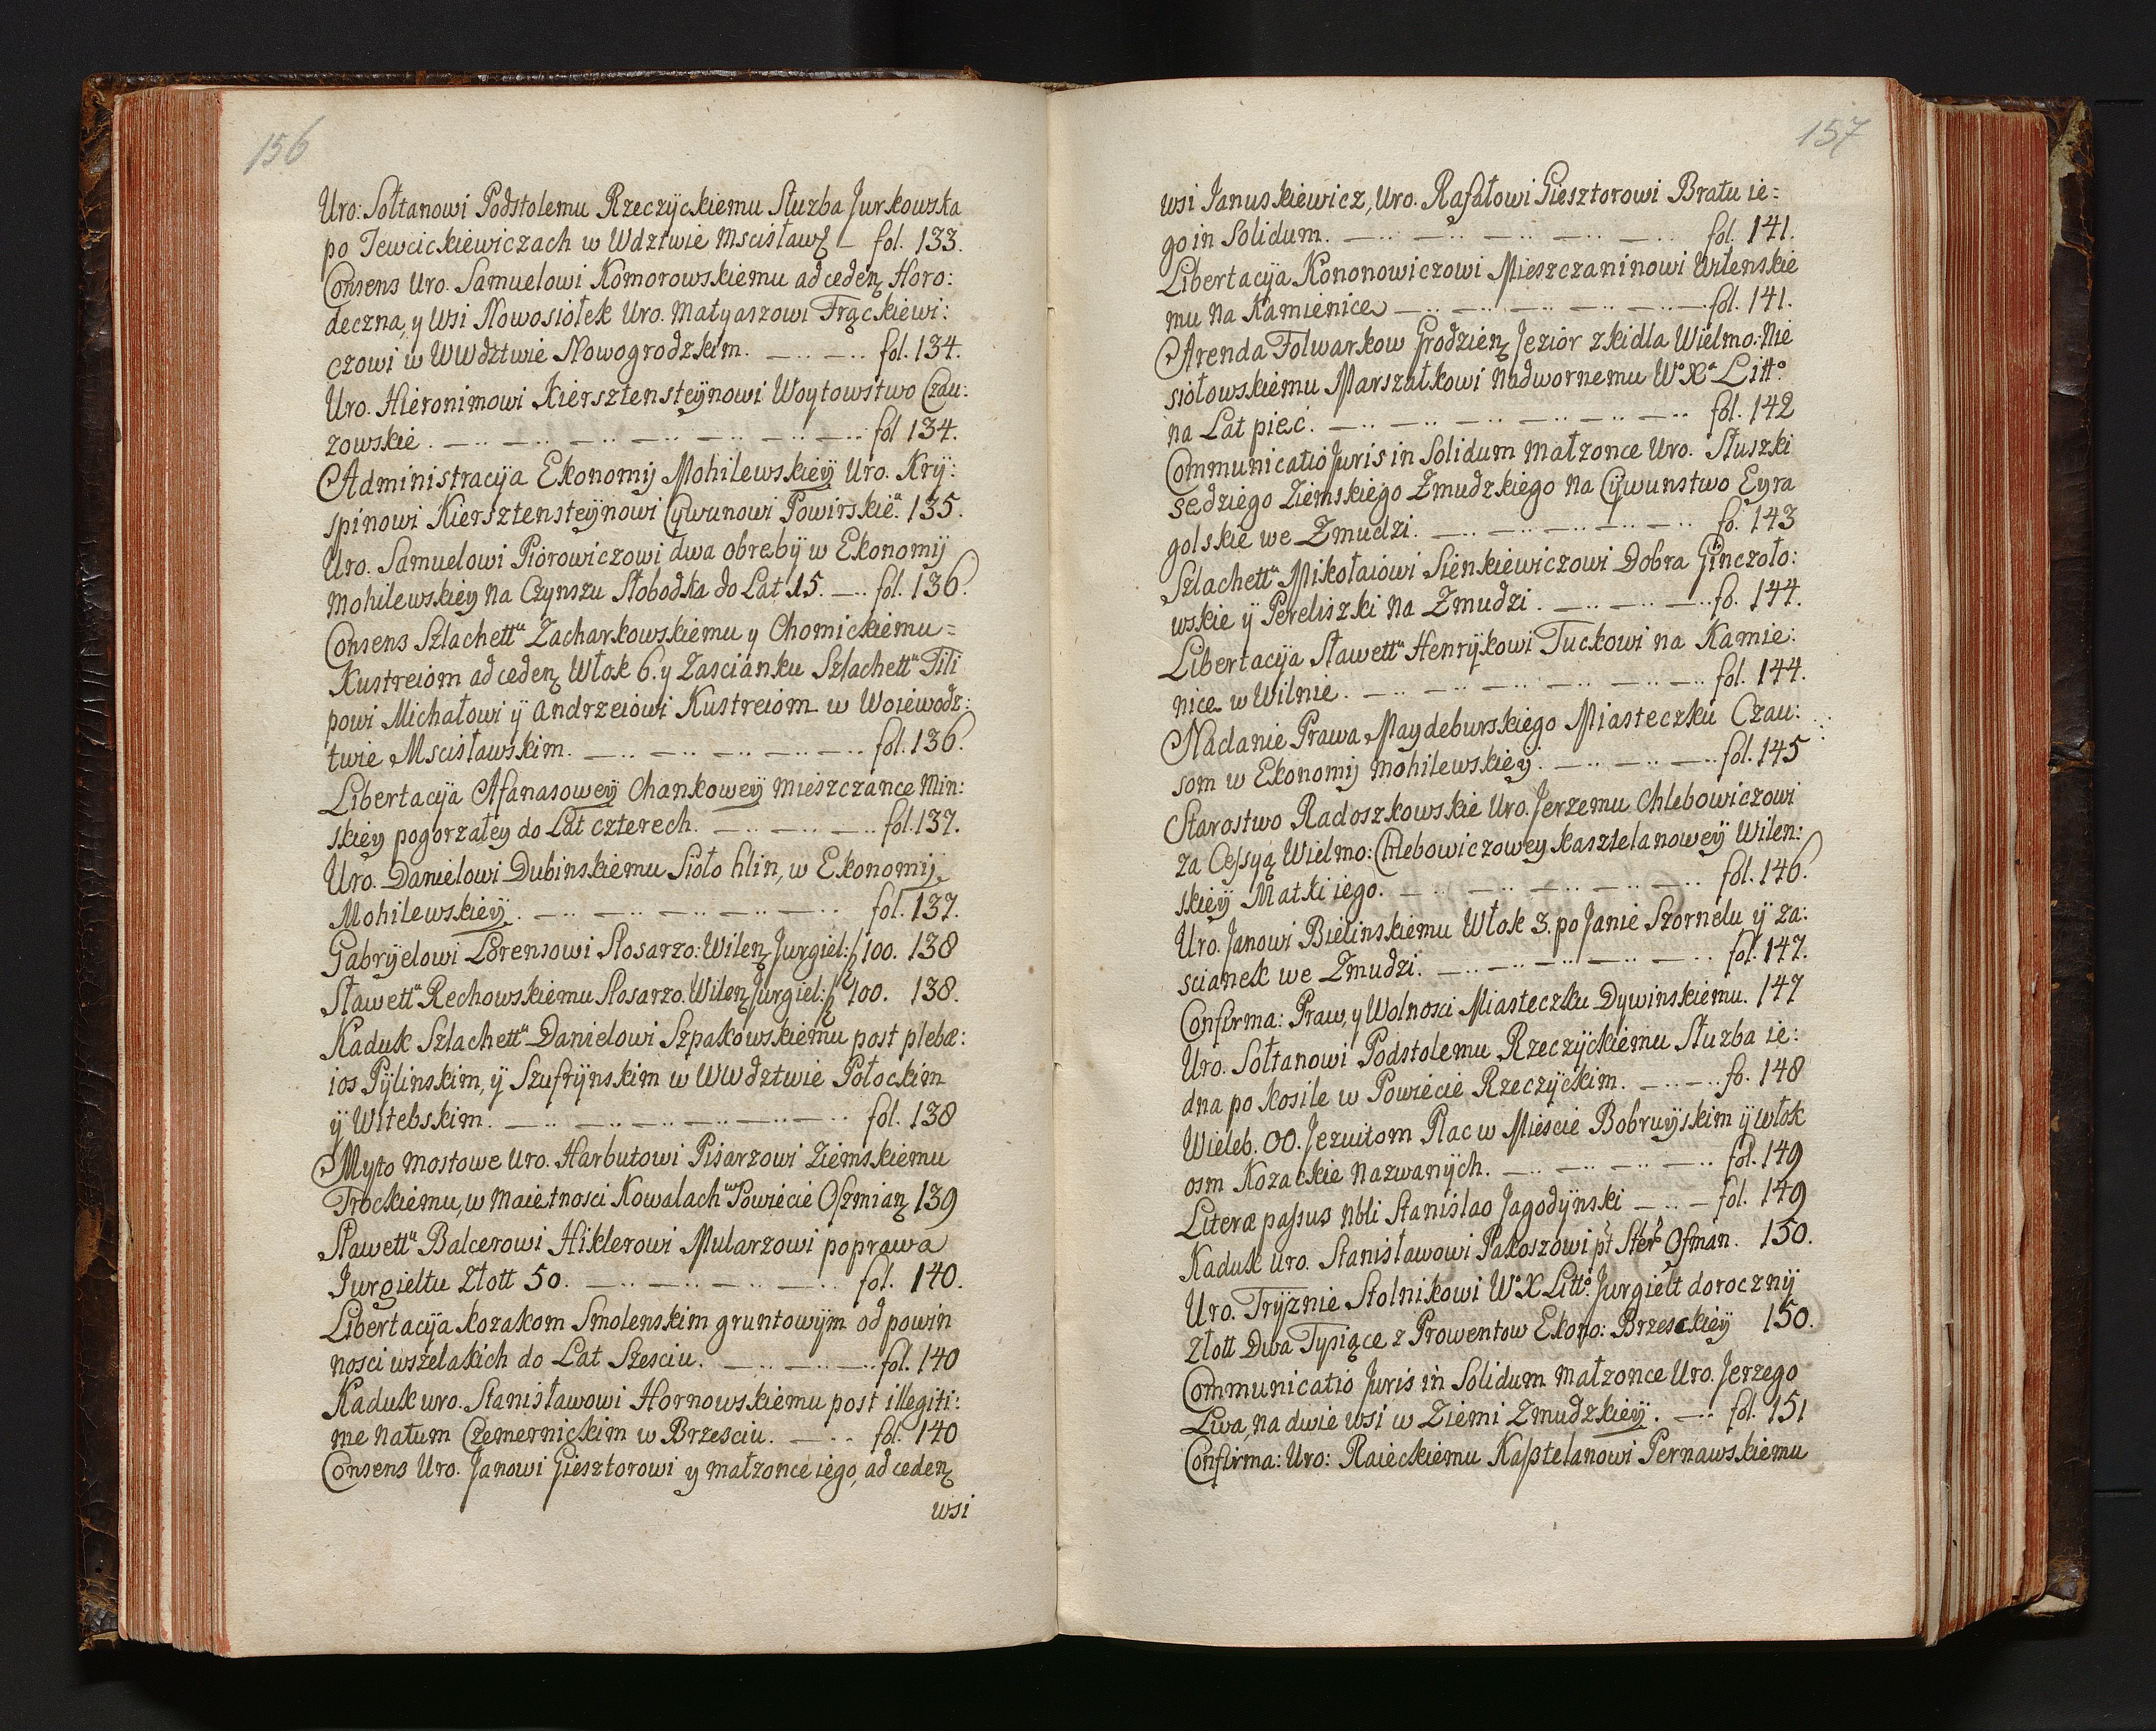 156
Uro: Sołtanowi Podstolemu Rzeczÿckiemu Służba Jurkowska
po Jewcickiewiczach w Wdztwie Mscisławʒ — fol. 133.
Consens Uro. Samuelowi Komorowskiemu ad cedenʒ Horo:
deczna, y Wsi Nowosiołek Uro. Matyaszowi Frąckiewi:
czowi w WWdztwie Nowogrodzkim. — .. — .. fol. 134.
Uro. Hieronimowi Kiersztensteÿnowi Woytowstwo Czau:
zowskie. — .. — .. — .. — .. — .. — .. — .. fol 134.
Administracÿa Ekonomij Mohilewskieÿ Uro. Krÿ:
spinowi Kiersztensteÿnowi Cywunowi Powirskieᵘ. 135.
Uro. Samuelowi Piorowiczowi dwa obrebÿ w Ekonomij
Mohilewskieÿ na Czynszu Słobodka do Lat 15. — .. fol. 136.
Consens Szlachettᵘ Zacharkowskiemu y Chomickiemu =
Kustreiom ad cedenʒ Włok 6. y Zascianku Szlachettᵘ Fili
powi Michałowi ÿ Andrzeiowi Kustreiom w Woiewodz:
twie Mscisławskim. — .. — .. — .. — .. — .. fol. 136.
Libertacÿa Afanasoweÿ Chankoweÿ mieszczance Min:
skieÿ pogorzałey do Lat czterech. — .. — .. — .. fol. 137.
Uro. Danielowi Dubinskiemu Sioło hlin, w Ekonomij
Mohilewskieÿ. — .. — .. — .. — .. — .. fol. 137.
Gabrÿelowi Lorensowi Slosarzo: Wilenʒ Jurgiel: f 100. 138
Sławettᵘ Rechowskiemu Slosarzo. Wilenʒ Jurgiel: f 100. 138.
Kaduk Szlachettᵘ Danielowi Szpakowskiemu post plebæ:
ios Pÿlinskim, ÿ Szufrÿnskim w WWdztwie Połockim
ÿ Witebskim. — .. — .. — .. — .. — .. — .. fol. 138
Myto mostowe Uro. Harbutowi Pisarzowi Ziemskiemu
Trockiemu, w maietnosci Kowalach w Powiecie Oszmianʒ 139
Sławettᵘ Balcerowi Hiklerowi Mularzowi poprawa
Jurgieltu Złott 50. — .. — .. — .. — .. fol. 140.
Libertacÿa Kozakom Smolenskim gruntowÿm od powin
nosci wszelakich do Lat Szesciu. — .. — .. — .. fol. 140
Kaduk uro. Stanisławowi Hornowskiemu post illegiti:
me natum Czemernickim w Brzesciu. — .. fol. 140
Consens Uro. Janowi Giesztorowi y małzonce iego, ad cedenʒ
wsi
157
wsi Januskiewicz, Uro. Rafałowi Giesztorowi Bratu ie=
go in Solidum. — .. — .. — .. — .. — .. fol. 141.
Libertacÿa Kononowiczowi Mieszczaninowi Wilenskie
mu na Kamienice — .. — .. — .. — .. — .. fol. 141.
Arenda Folwarkow Grodzienʒ Jezior zkidla Wielmo: Nie
siołowskiemu Marszałkowi Nadwornemu Wᵒ Xᵃ Littᵒ
na Lat piec. — .. — .. — .. — .. — .. — .. fol. 142
Communicatio Juris in Solidum małzonce Uro. Słuszki
Sedziego Ziemskiego Zmudzkiego na Cÿwunstwo Eyra
golskie we Zmudzi. — .. — .. — .. — .. fo. 143
Szlachettᵘ Mikołaiowi Sienkiewiczowi Dobra Ginczoło:
wskie ÿ Pereliszki na Zmudzi. — .. — .. — .. fo. 144.
Libertacÿa Sławettᵘ Henrÿkowi Tuckowi na Kamie:
nice w Wilnie. — .. — .. — .. — .. — .. fol. 144.
Nadanie Prawa Maydeburskiego Miasteczku Czau:
som w Ekonomij Mohilewskieÿ. — .. — .. — .. fol. 145
Starostwo Radoszkowskie Uro. Jerzemu Chlebowiczowi
za Cessyą Wielmo: Chlebowiczoweÿ Kasztelanoweÿ Wilen:
skieÿ Matki iego. — .. — .. — .. — .. — .. fol. 146.
Uro. Janowi Bielinskiemu Włok 3. po Janie Szornelu ÿ za:
scianek we Zmudzi. — .. — .. — .. — .. — .. fol. 147.
Confirma: Praw, y Wolnosci Miasteczku Dywinskiemu. 147
Uro. Sołtanowi Podstolemu Rzeczÿckiemu Służba ie:
dna po Kosile w Powiecie Rzeczÿckim. — .. — .. fo. 148
Wieleb. OO. Jezuitom Plac w Miescie Bobruÿskim ÿ włok
osm Kozackie nazwanÿch. — .. — .. — .. — .. fol. 149
Literæ passus Nbli Stanislao Jagodÿnski — .. — fol. 149
Kaduk Uro. Stanisławowi Pakoszowi pt Ster Osman. 150.
Uro. Trÿznie Stolnikowi Wᵒ X Littᵒ Jurgielt dorocznÿ
Złott Dwa Tysiące z Prowentow Ekono: Brzesckieÿ 150.
Communicatio Juris in Solidum małzonce Uro. Jerzego
Lwa, na dwie wsi w Ziemi Zmudzkieÿ. — .. fol. 151
Confirma: Uro: Raieckiemu Kasztelanowi Pernawskiemu